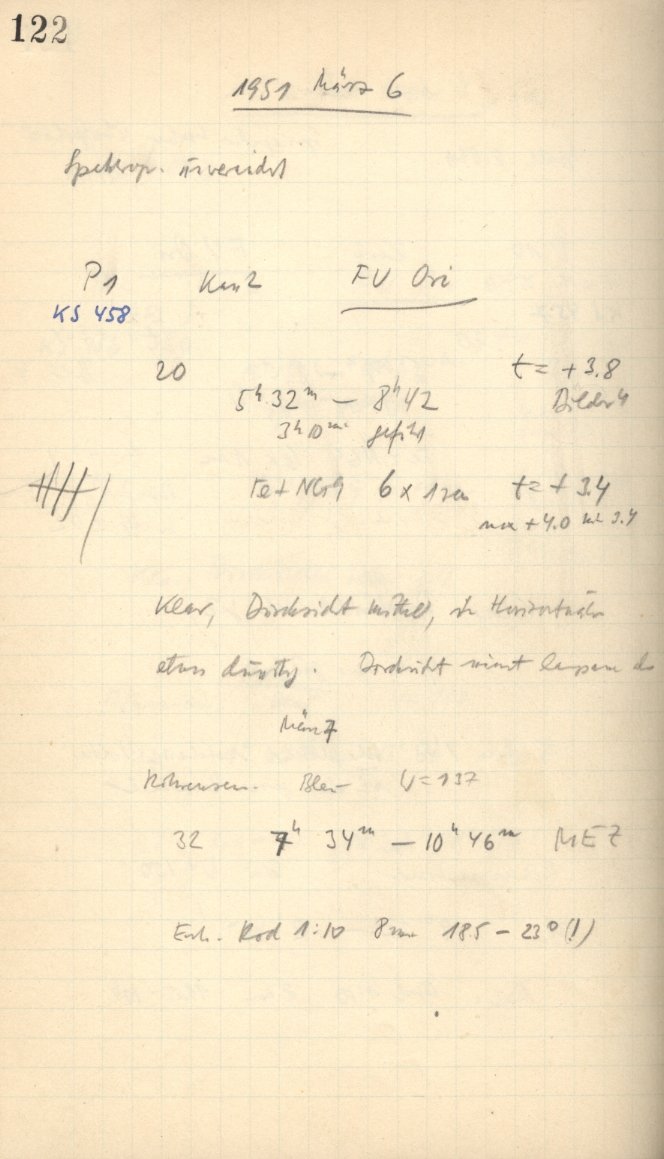 122
1951 März 6
Spektrop. unverändert
P1 Kam 2 FU Ori
KS 458
20 t = + 3.8
5ʰ 32ᵐ — 8ʰ 42 Bilder 4
3ʰ 10ᵐ
Fe + 6 x t = + 3.4
max + 4.0 3.4
Klar, Durchsicht mittel, in Horizontnähe
etwas dunstig. Durchsicht nimmt langsam ab
März 7
Blau U = 137
32 7ʰ 34ᵐ — 10ʰ 46ᵐ MEZ
Entw. Rod 1:10 8 min 18.5 — 23° (!)